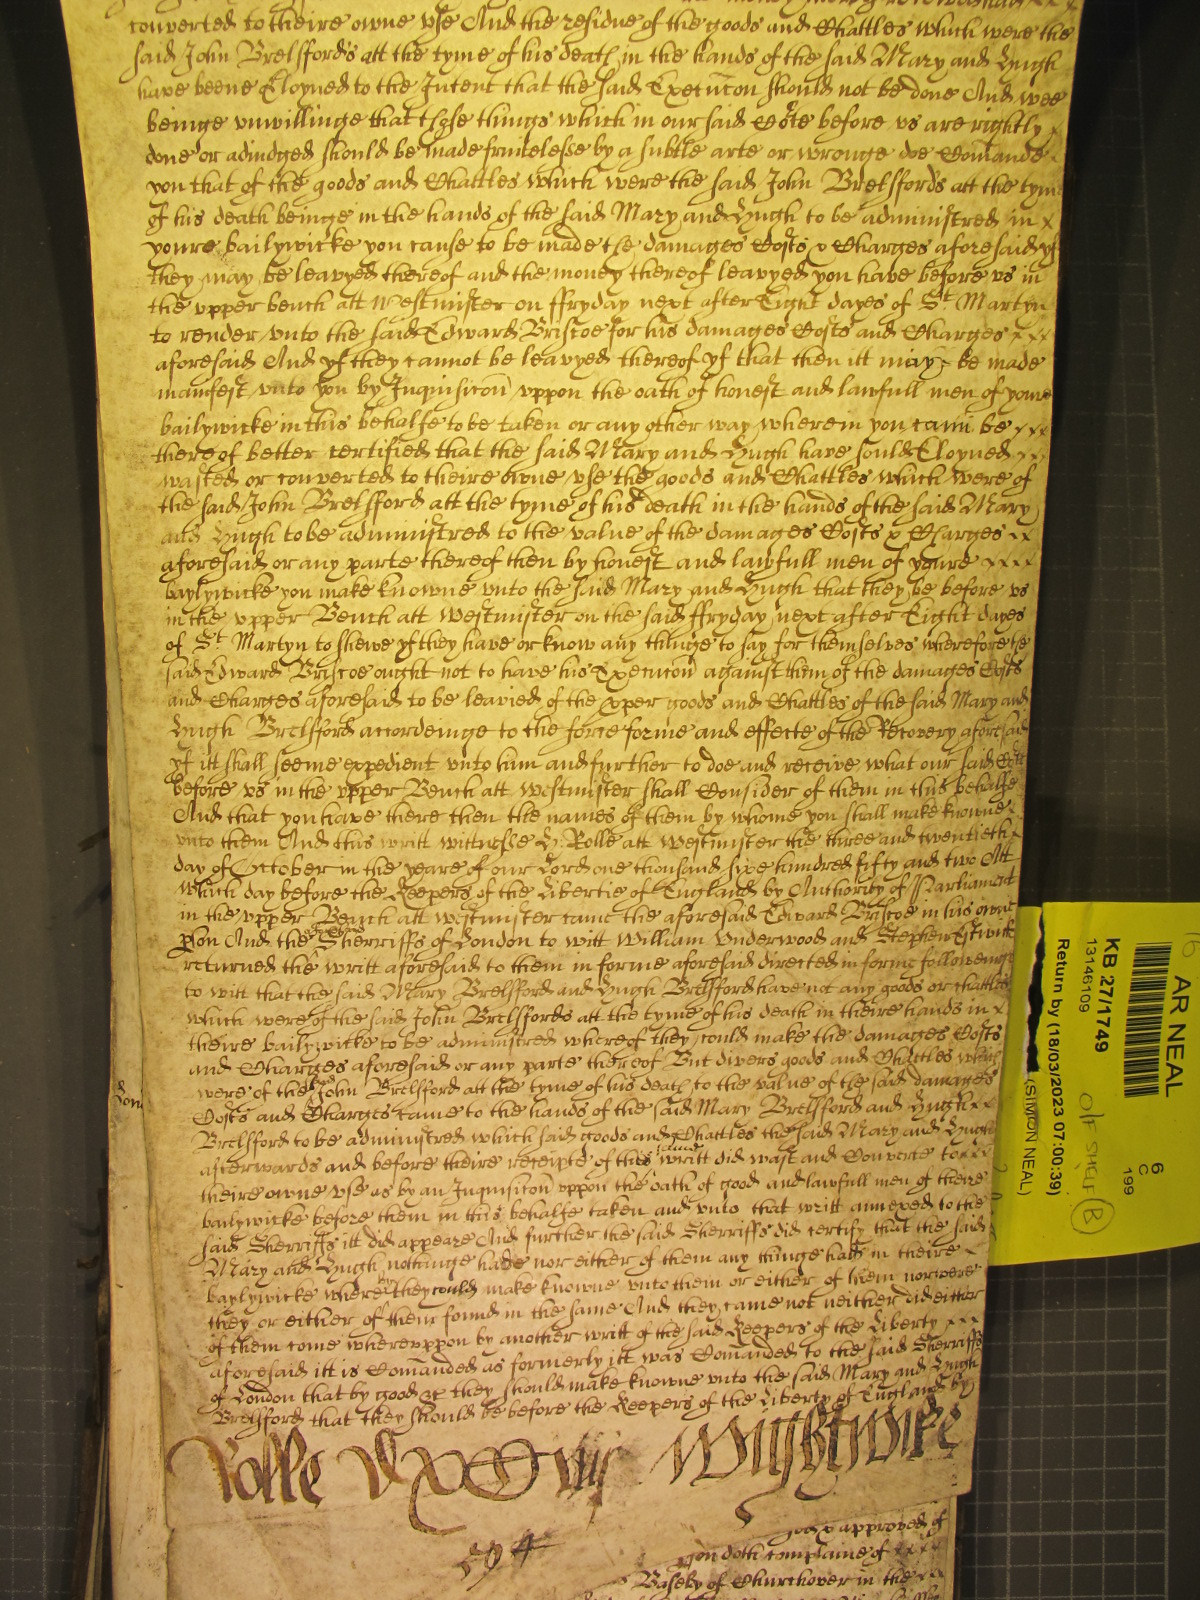 converted to theire owne vse And the residue of the goods and Chattles which were the
said John Brelsfords att the tyme of his death in the hands of the said Mary and Hugh
have beene Eloyned to the Intent that the said Execucon should not be done And wee
beinge vnwillinge that those things which in our said Cote before vs are rightly
done or adiudged should be made fruitelesse by a subtle arte or wronge doe Comande
you that of the goods and Chattles which were the said John Brelsfords att the tyme
of his death beinge in the hands of the said Mary and Hugh to be administred in
youre bailywicke you cause to be made the damages Costs & Charges aforesaid yf
they may be leavyed thereof and the money thereof leavyed you have before vs in
the vpper bench att Westminster on ffryday next after Eight dayes of St Martyn
to render vnto the said Edward Briscoe for his damages Costs and Charges
aforesaid And yf they cannot be leavyed thereof yf that then itt may be made
manifest vnto you by Inquisicon vppon the oath of honest and lawfull men of youre
bailywicke in this behalfe to be taken or any other way wherein you cann be
thereof better certified that the said Mary and Hugh have sould Eloyned
wasted or converted to theire owne vse the goods and Chattles which were of
the said John Brelsford att the tyme of his death in the hands of the said Mary
and Hugh to be administred to the value of the damages Costs & Charges
aforesaid or any parte thereof then by honest and lawfull men of youre
baylywicke you make knowne vnto the said Mary and Hugh that they be before vs
in the vpper Bench att Westminster on the said ffryday next after Eight dayes
of St Martyn to shewe yf they have or know any thinge to say for themselves wherefore the
said Edward Briscoe ought not to have his Execucon against them of the damages Costs
and Charges aforesaid to be leavied of the pper goods and Chattles of the said Mary and
Hugh Brelsford accordeinge to the force forme and effecte of the Recovery aforesaid
yf itt shall seeme expedient vnto him and further to doe and receive what our said Cote
before vs in the vpper Bench att Westminster shall Consider of them in this behalfe
And that you have there then the names of them by whome you shall make knowne
vnto them And this writt wittnesse H: Rolle att Westminster the three and twentieth
day of October in the yeare of our Lord one thousand sixe hundred fifty and two Att
which day before the Keepers of the Libertie of England by Authority of Parliament
in the vpper Bench att Westminster came the aforesaid Edward Briscoe in his owne
pson And the Sherriffs of London to witt William Underwood and Stephen Estwick
returned the writt aforesaid to them in forme aforesaid directed in forme followeinge
to witt that the said Mary Brelsford and Hugh Brelsford have not any goods or chattles
which were of the said John Brelsfords att the tyme of his death in theire hands in
theire bailywicke to be administred whereof they could make the damages Costs
and Charges aforesaid or any parte thereof But divers goods and Chattles which
were of the said John Brelsford att the tyme of his death to the value of the said damages
Costs and Charges came to the hands of the said Mary Brelsford and Hugh
Brelsford to be administred which said goods and Chattles the said Mary and Hugh
afterwards and before theire receipte of this same writt did wast and Converte to
theire owne vse as by an Inquisicon vppon the oath of good and lawfull men of theire
bailywicke before them in this behalfe taken and vnto that writt annexed to the
said Sherriffs itt did appeare And further the said Sherriffs did certify that the said
Mary and Hugh nothinge hadd nor either of them any thinge hadd in theire
baylywicke where by they could make knowne vnto them or either of them nor were
they or either of them found in the same And they came not neither did either
of them come wherevppon by another writt of the said Keepers of the Liberty
aforesaid itt is Comanded as formerly itt was Comanded to the said Sherriffs
of London that by good &c they should make knowne vnto the said Mary and Hugh
Brelsford that they should be before the Keepers of the Liberty of England by
Rolle Wightwike
approved of
doth complaine of
Baseby of Churchover in the
AR NEAL
KB 27/1749
13146109
Return by (18/03/2023 07:00:39)
(SIMON NEAL)
O/F SHELF B
6
C
199